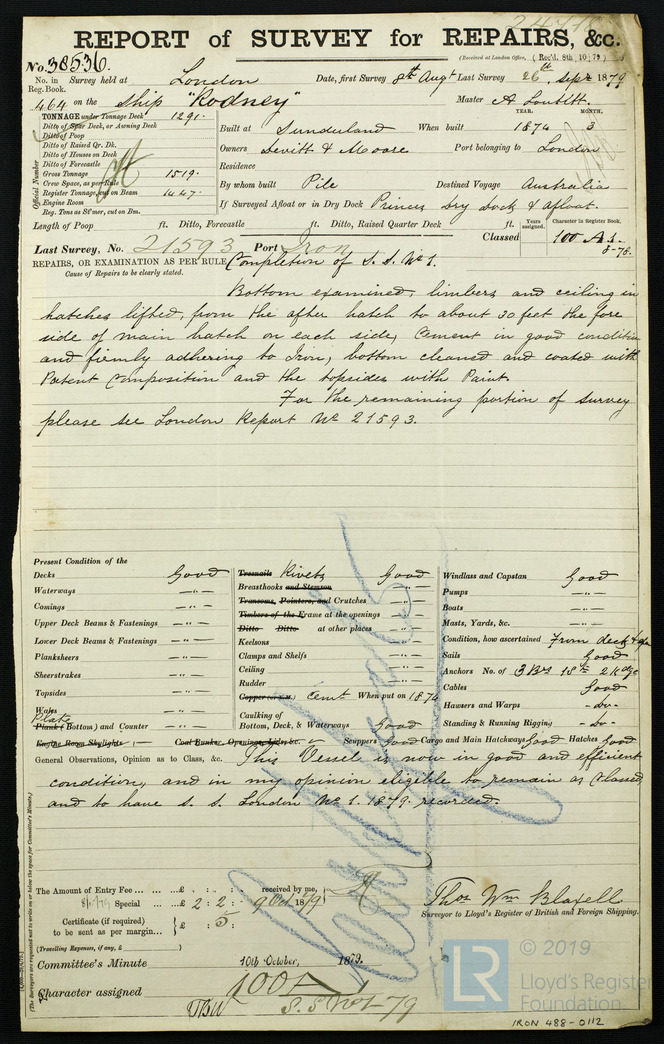 REPORT of SURVEY for REPAIRS, &c.
(Received at London Office, (Rec'd. 8th 10. 79)
No. 38536.
No. in Survey held at London Date, first Survey 8th Augt Last Survey 26th Sept 1879
Reg. Book.
464 on the Ship "Rodney" Master A Louttit.
TONNAGE under Tonnage Deck 1291.
Ditto of Spar Deck, or Awning Deck
Ditto of Poop
Ditto of Raised Qr. Dk.
Ditto of Houses on Deck
Ditto of Forecastle
Gross Tonnage 1519.
Crew Space, as per Rule
Register Tonnage, cut on Beam 1447.
Engine Room
Reg. Tons as St'mer, cut on Bm.
Official Number
YEAR. MONTH.
Built at Sunderland When built 1874 3
Owners Devitt & Moore Port belonging to London
Residence
By whom built Pile Destined Voyage Australia
If Surveyed Afloat or in Dry Dock Princes Dry Dock & afloat.
Length of Poop ft. Ditto, Forecastle ft. Ditto, Raised Quarter Deck ft.
Years assigned. Character in Register Book.
Last Survey, No. 21593 Port Iron Classed 100 A 1.
3-78.
REPAIRS, OR EXAMINATION AS PER RULE, Completion of S. S. No 1.
Cause of Repairs to be clearly stated.
Bottom examined, limbers and ceiling in
hatches lifted, from the after hatch to about 30 feet the fore
side of main hatch on each side, Cement in good condition
and firmly adhering to Iron, bottom cleaned and coated with
Patent Composition and the topsides with Paint.
For the remaining portion of survey
please see London Report No 21593.
Present Condition of the
Decks Good
Waterways -"-
Comings -"-
Upper Deck Beams & Fastenings -"-
Lower Deck Beams & Fastenings -"-
Planksheers -"-
Sheerstrakes -"-
Topsides -"-
Wales -"-
Plate
Plank (Bottom) and Counter -"-
Engine Room Skylights Coal Bunker Openings, Lids, &c.
Treenails Rivets Good
Breasthooks and Stemson -"-
Transoms, Pointers, and Crutches -"-
Timbers of the Frame at the openings -"-
Ditto Ditto at other places -"-
Keelsons -"-
Clamps and Shelfs -"-
Ceiling -"-
Rudder -"-
Copper (or Y.M.) Cemt When put on 1874
Caulking of
Bottom, Deck, & Waterways Good
Scuppers Good Cargo and Main Hatchways Good Hatches Good
Windlass and Capstan Good
Pumps -"-
Boats -"-
Masts, Yards, &c. -"-
Condition, how ascertained From deck
Sails Good
Anchors No. of 3 Brs 1 St 2 Kedge
Cables Good
Hawsers and Warps -do-
Standing & Running Rigging -do-
General Observations, Opinion as to Class, &c. This Vessel is now in good and efficient
condition, and in my opinion eligible to remain as Classed
and to have S. S. London No 1. 1879. recorded.
The Amount of Entry Fee ... ... ...£ : : received by me,
Special ... ..£ 2 : 2 : 9 Oct 1879
Certificate (if required)
to be sent as per margin... £ : 5 :
(Travelling Expenses, if any, £ )
Thos Wm Blaxell
Surveyor to Lloyd's Register of British and Foreign Shipping.
Committee's Minute 10th October, 1879.
Character assigned 100A
S. S No 1-79
(The Surveyors are requested not to write on or below the space for Committee's Minute.)
LR
© 2019
Lloyd's Register
Foundation
IRON 488-0112